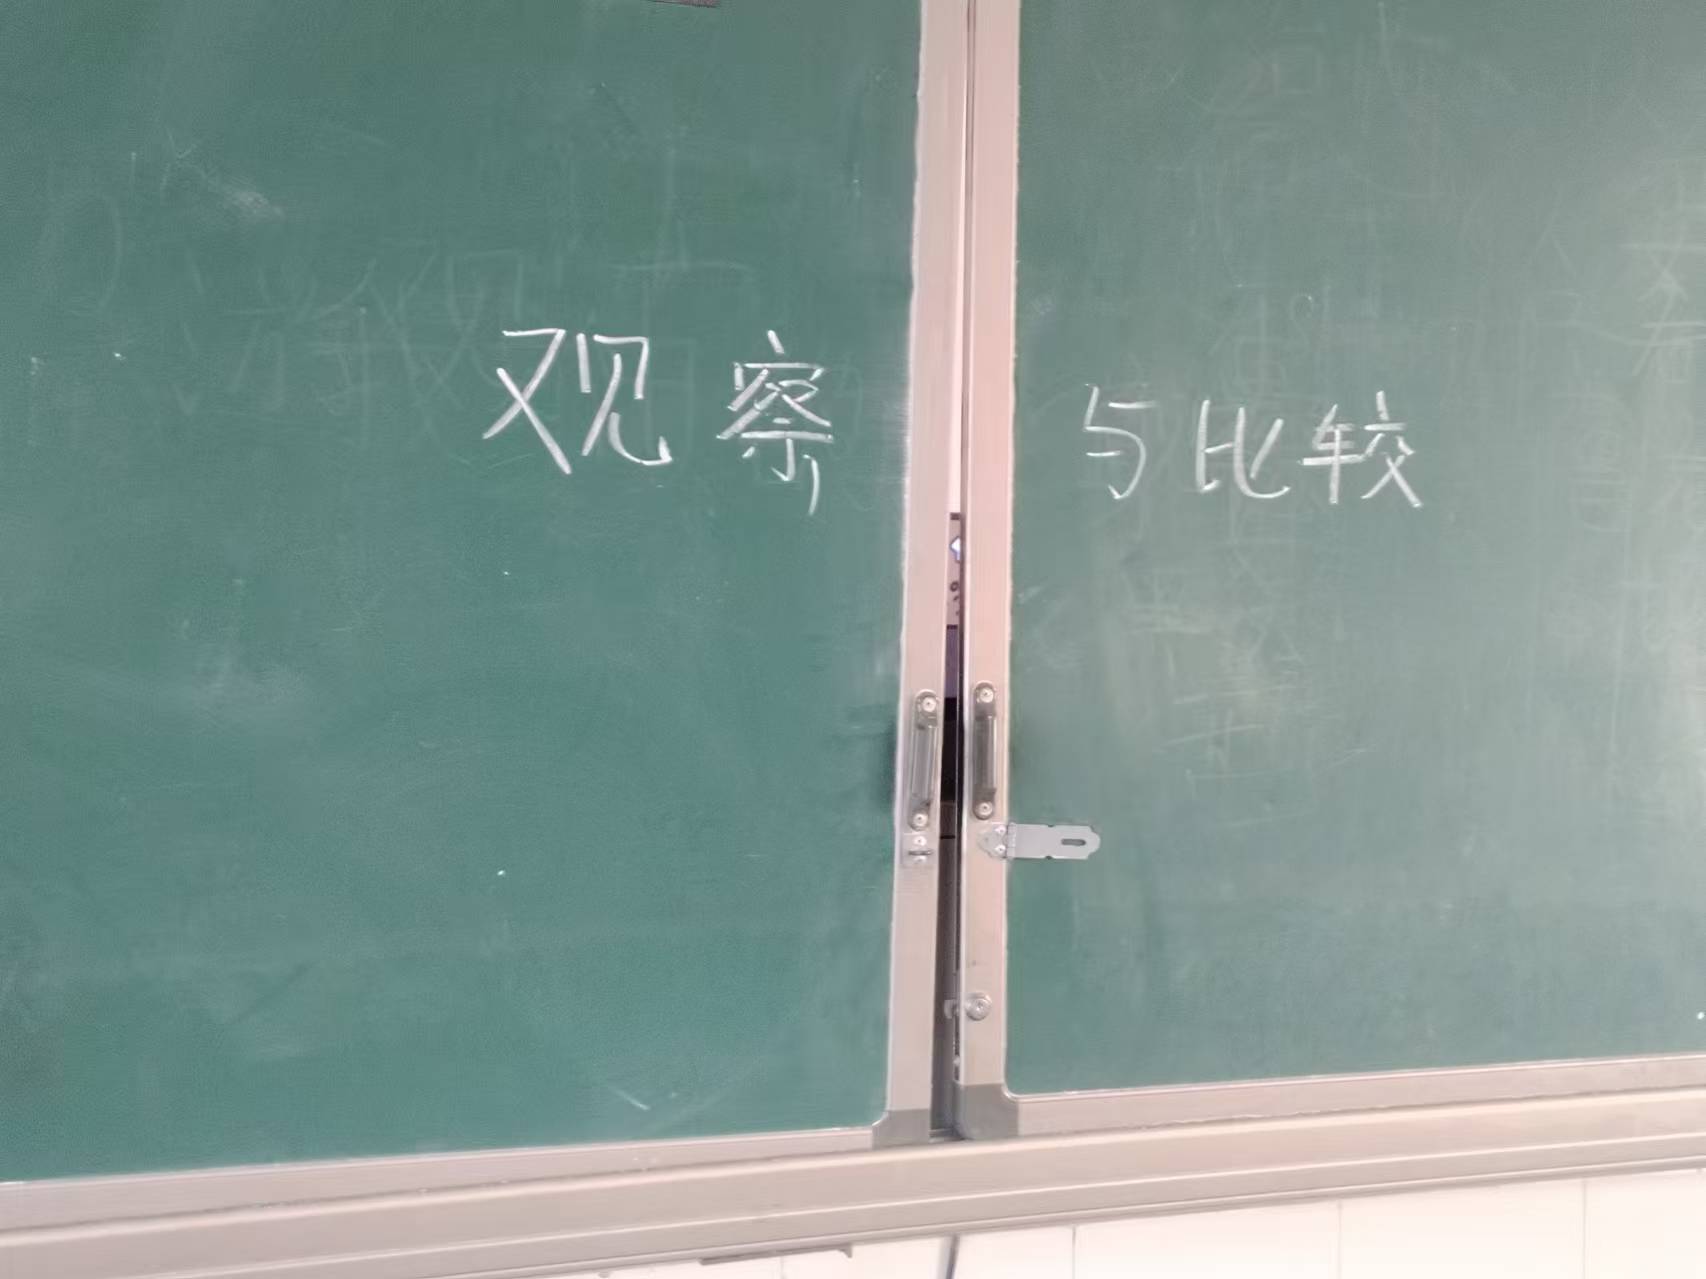 观察与比较